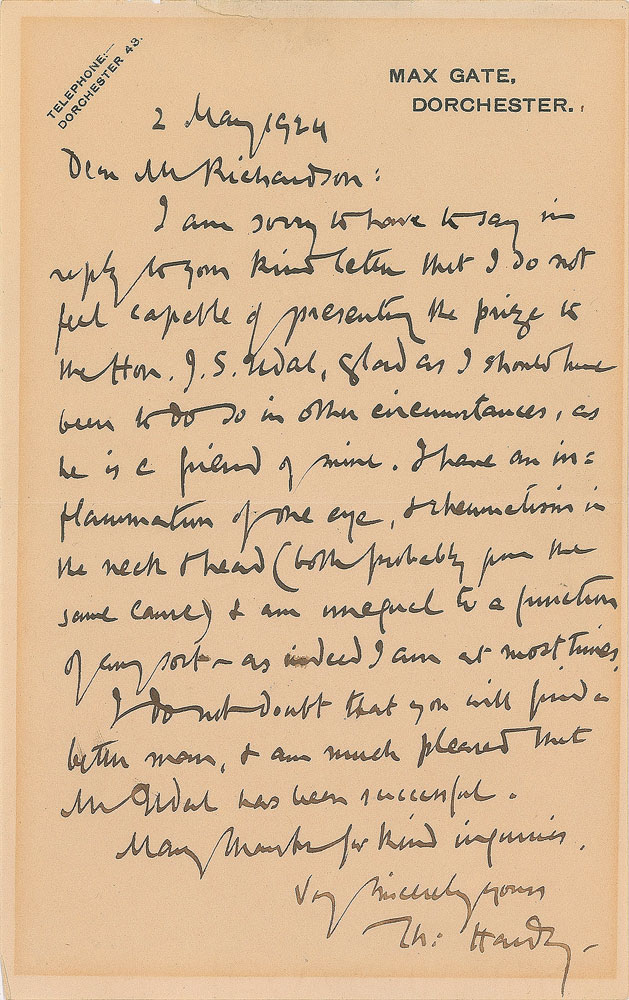 TELEPHONE:—
DORCHESTER 43.
MAX GATE,
DORCHESTER.
2 May 1924
Dear Mr Richardson:
I am sorry to have to say in
reply to your kind letter that I do not
feel capable of presenting the prize to
the Hon. J. S. Udal, glad as I should have
been to do so in other circumstances, as
he is a friend of mine. I have an in=
flammation of one eye, & rheumatism in
the neck & head (both probably from the
same cause) & am unequal to a function
of any sort — as indeed I am at most times.
I do not doubt that you will find a
better man, & am much pleased that
Mr Udal has been successful.
Many thanks for kind inquiries.
Very sincerely yours
Th: Hardy.—